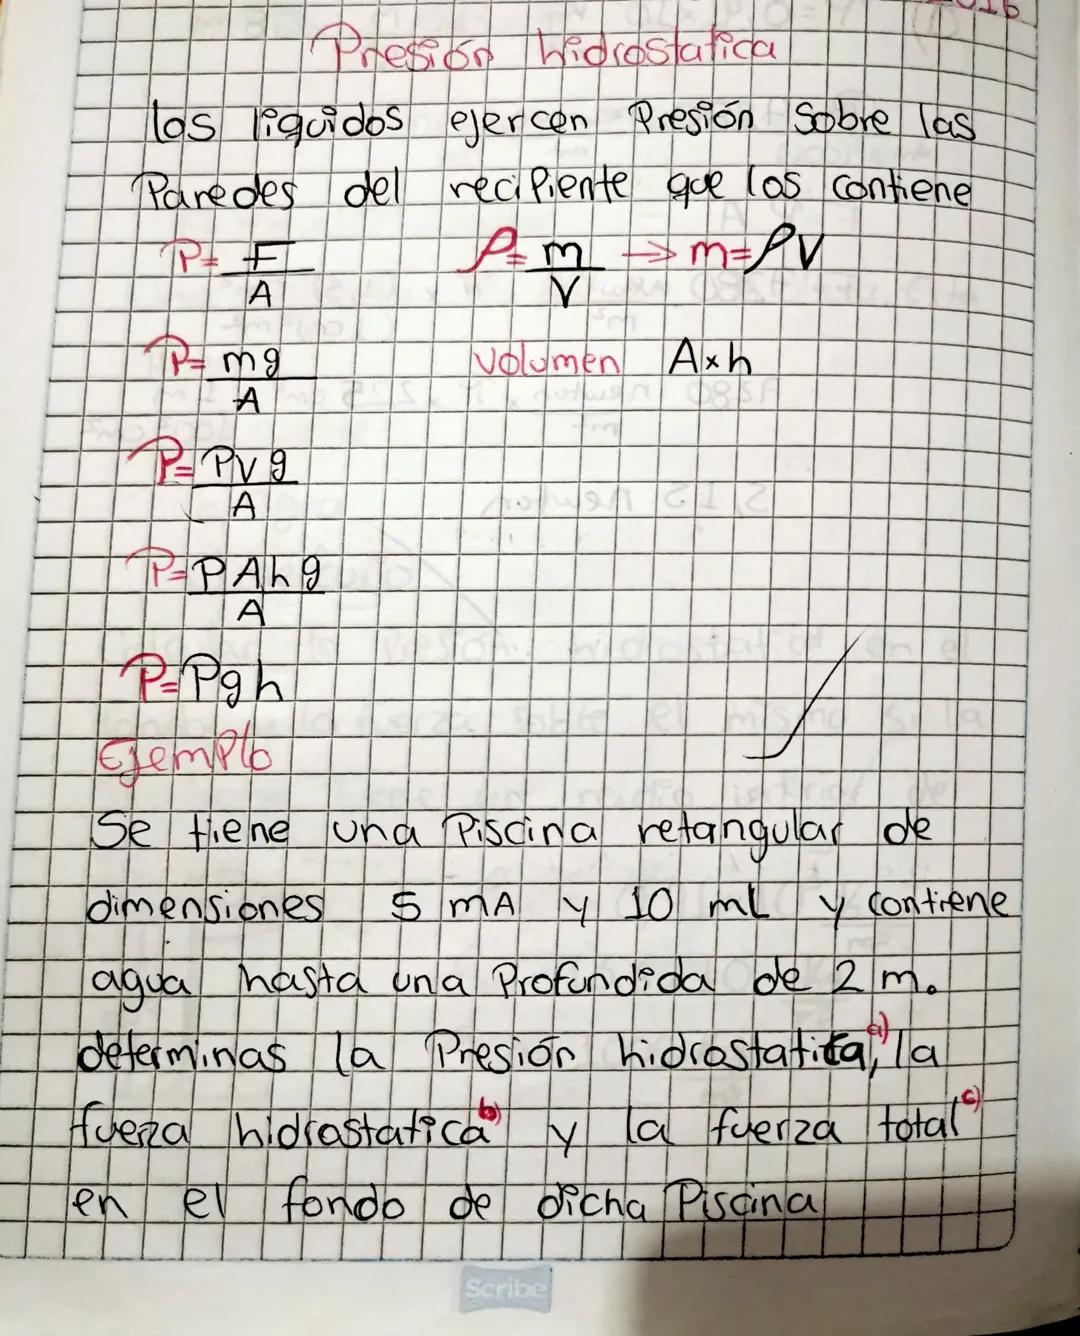 Presión hidrostatica
los liquidos ejercen Presión Sobre las
Paredes del recipiente que los contiene
P= F/A ρ= m/V → m=ρV
P= mg/A volumen A×h
P= PVg/A
P= PAhg/A
P= Pgh
Ejemplo
Se tiene una Piscina retangular de
dimensiones 5 mA y 10 mL y contiene
agua hasta una Profundida de 2 m.
determinas la Presión hidrostatica, a) la
fuerza hidrostatica b) y la fuerza total c)
en el fondo de dicha Piscina
Scribe